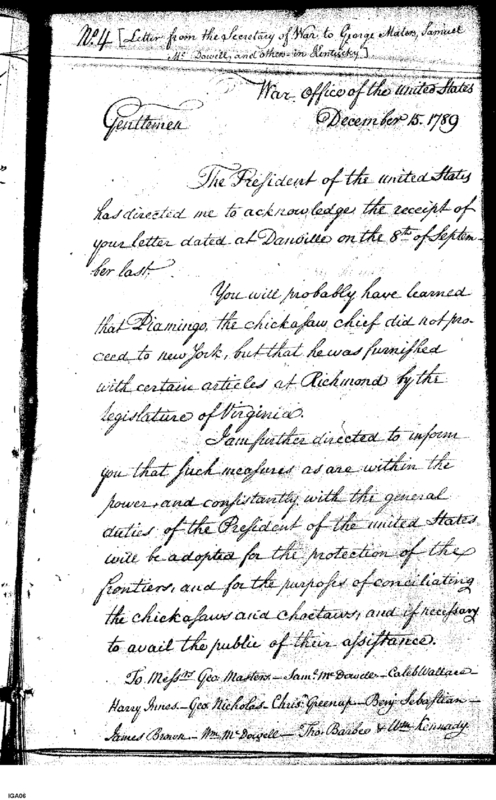 No. 4 [Letter from the Secretary of War to George Muters, Samuel
Mc Dowell, and others in Kentucky]
War Office of the united States
December 15. 1789
Gentlemen
The President of the united States
has directed me to acknowledge the receipt of
your letter dated at Danville on the 8th of Septem-
ber last.
You will probably have learned
that Piamingo, the chickasaw chief did not pro-
ceed to new York, but that he was furnished
with certain articles at Richmond by the
legislature of Virginia.
I am further directed to inform
you that such measures as are within the
power, and consistantly with the general
duties of the President of the united States
will be adopted for the protection of the
frontiers, and for the purposes of conciliating
the chickasaws and choctaws, and if necessary
to avail the public of their assistance.
To Messrs Geo Masters - Saml Mc Dowder - Caleb Wallace
Harry Innes - Geo Nicholas - Chrisr Greenup - Benj Sebastian -
James Brown - Wm Mc Dowell - Tho Barbee & Wm Kennady
IGA06